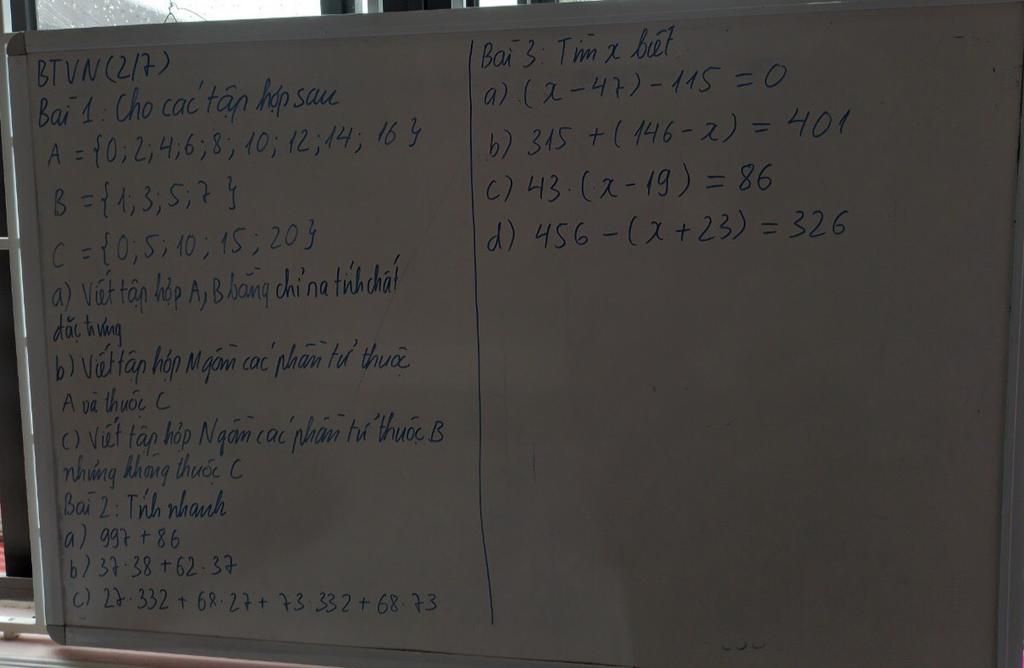 BTVN (2/7)
Bài 1: Cho các tập hợp sau
A = {0; 2; 4; 6; 8; 10; 12; 14; 16}
B = {1; 3; 5; 7}
C = {0; 5; 10; 15; 20}
a) Viết tập hợp A, B bằng chỉ ra tính chất
đặc trưng
b) Viết tập hợp M gồm các phần tử thuộc
A và thuộc C
c) Viết tập hợp N gồm các phần tử thuộc B
nhưng không thuộc C
Bài 2: Tính nhanh
a) 997 + 86
b) 37·38 + 62·37
c) 27·332 + 68·27 + 73·332 + 68·73
Bài 3: Tìm x biết
a) (x - 47) - 115 = 0
b) 315 + (146 - x) = 401
c) 43·(x - 19) = 86
d) 456 - (x + 23) = 326